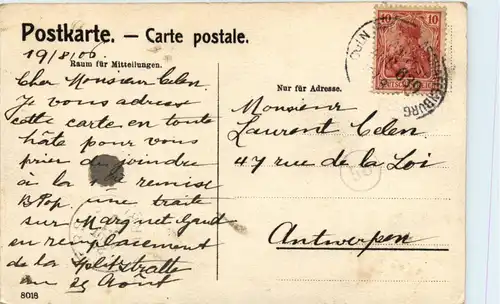 Postkarte. — Carte postale.
19/8/06
Raum für Mitteilungen.
Nur für Adresse.
Cher Monsieur Celen.
Je vous adresse
cette carte en toute
hâte pour vous
prier de joindre
à la remise
B Pop une traite
sur Margnet Gand
en remplacement
de la Splitstratte
au 25 Août
Monsieur
Laurent Celen
47 rue de la Loi
Antwerpen
10 10
8018